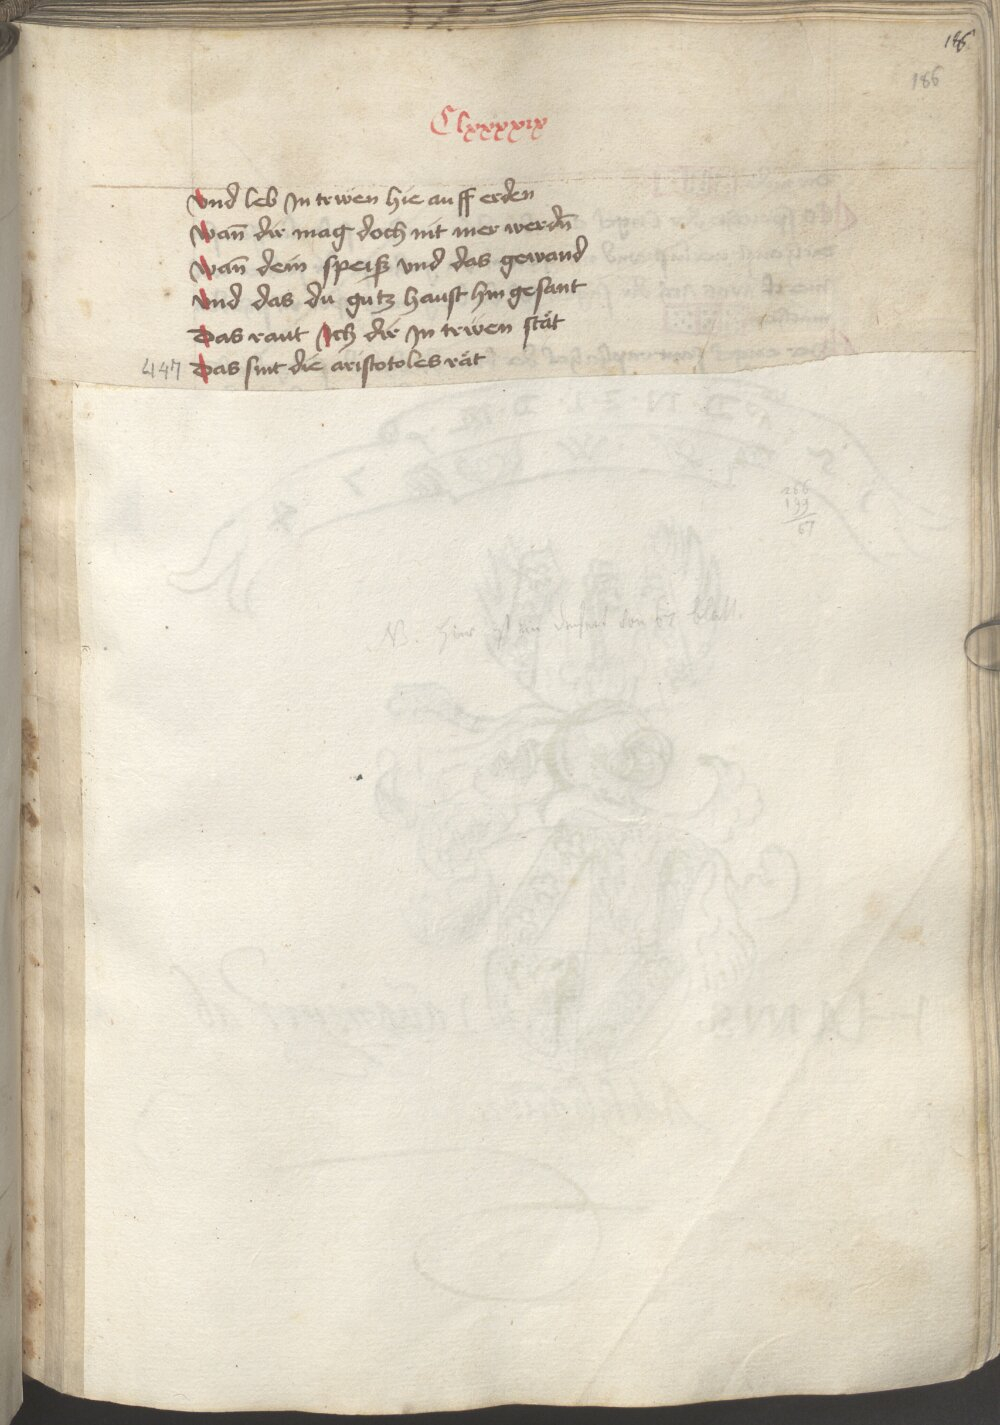 186
186
Clxxxxix
Vnd leb In trwen hie auff erden
Wañ dir mag doch nit mer werdn̄
Wañ dein speiß vnd das gewand
Vnd das du gutz haust hin gesant
Das raut Ich dir In trwen stät
447 Das sint die aristotoles rät
266
199
67
NB. hier ist ein defect von 67 blatt.